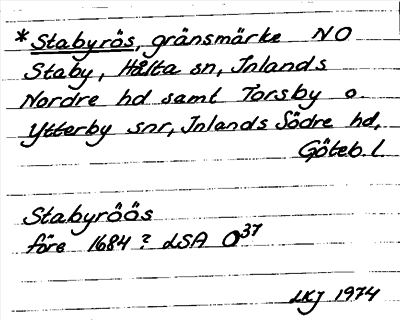 *Stabyrös, gränsmärke NO
Staby, Hålta sn, Inlands
Nordre hd samt Torsby o.
Ytterby snr, Inlands Södre hd,
Göteb. l.
Stabyröös
före 1684? LSA O37
LKJ 1974